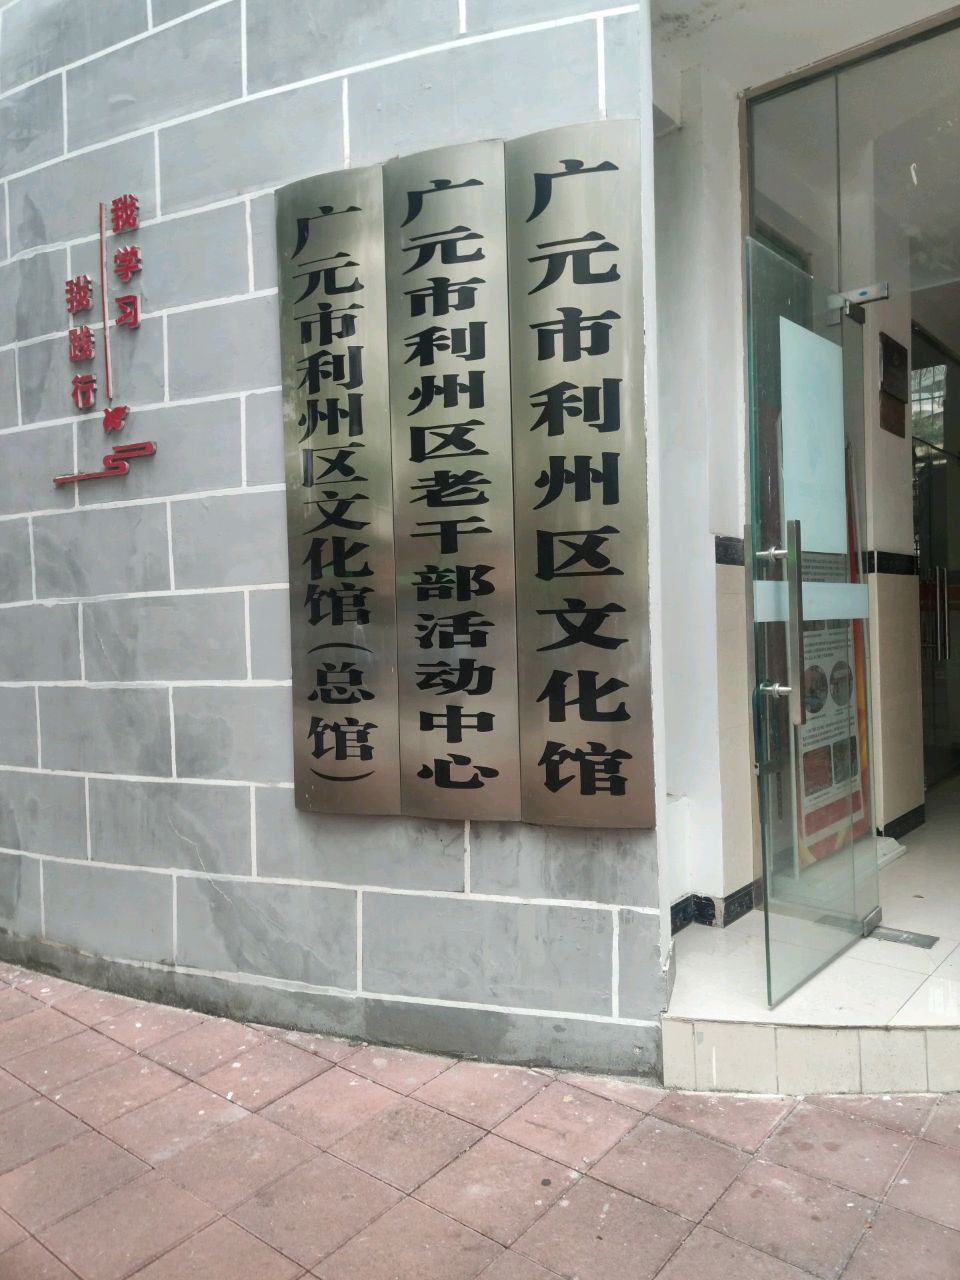 广元市利州区文化馆
广元市利州区老干部活动中心
广元市利州区文化馆(总馆)
我学习
我践行